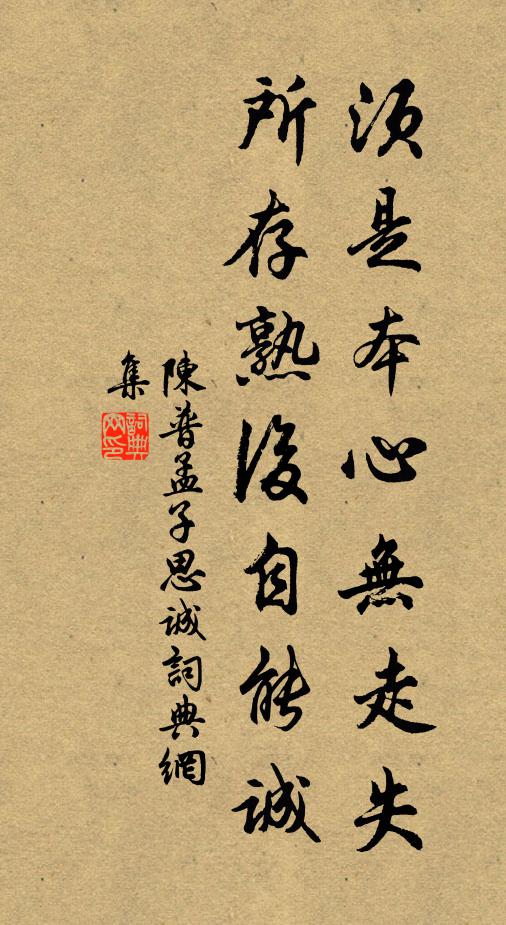 須是本心無走失
所存熟後自能誠
陳普孟子思誠詞典網
集
詞典
网印